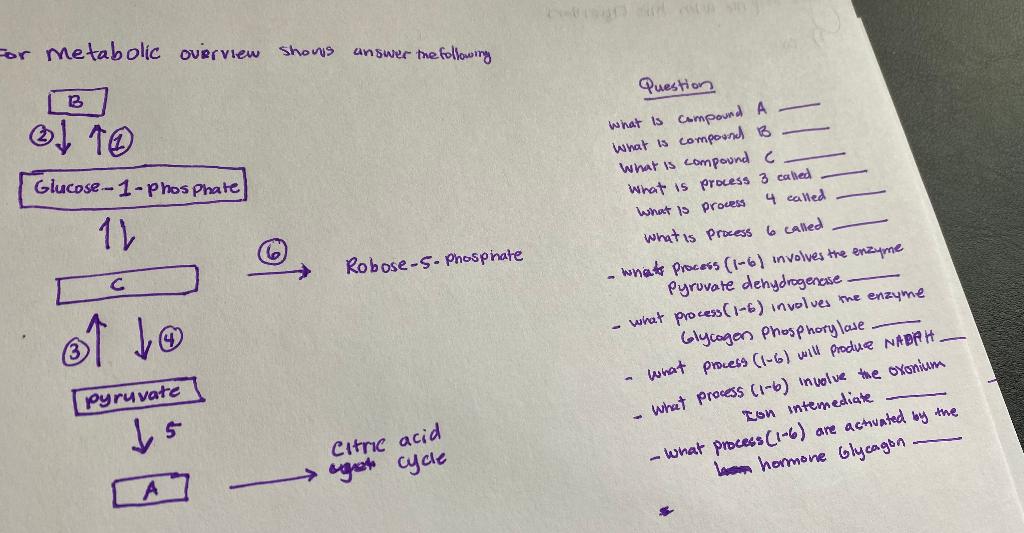 For metabolic overview shows answer the following
B
2 1
Glucose-1-phosphate
C
6
Robose-5-Phosphate
3 4
pyruvate
5
A
Citric acid
cycle
Question
What is compound A
What is compound B
What is compound C
What is process 3 called
What is process 4 called
What is process 6 called
- what process (1-6) involves the enzyme
Pyruvate dehydrogenase
- what process (1-6) involves the enzyme
Glycogen Phosphorylase
- what process (1-6) will produce NADPH
- what process (1-6) involve the oxonium
Ion intemediate
- what process (1-6) are activated by the
hormone Glycagon